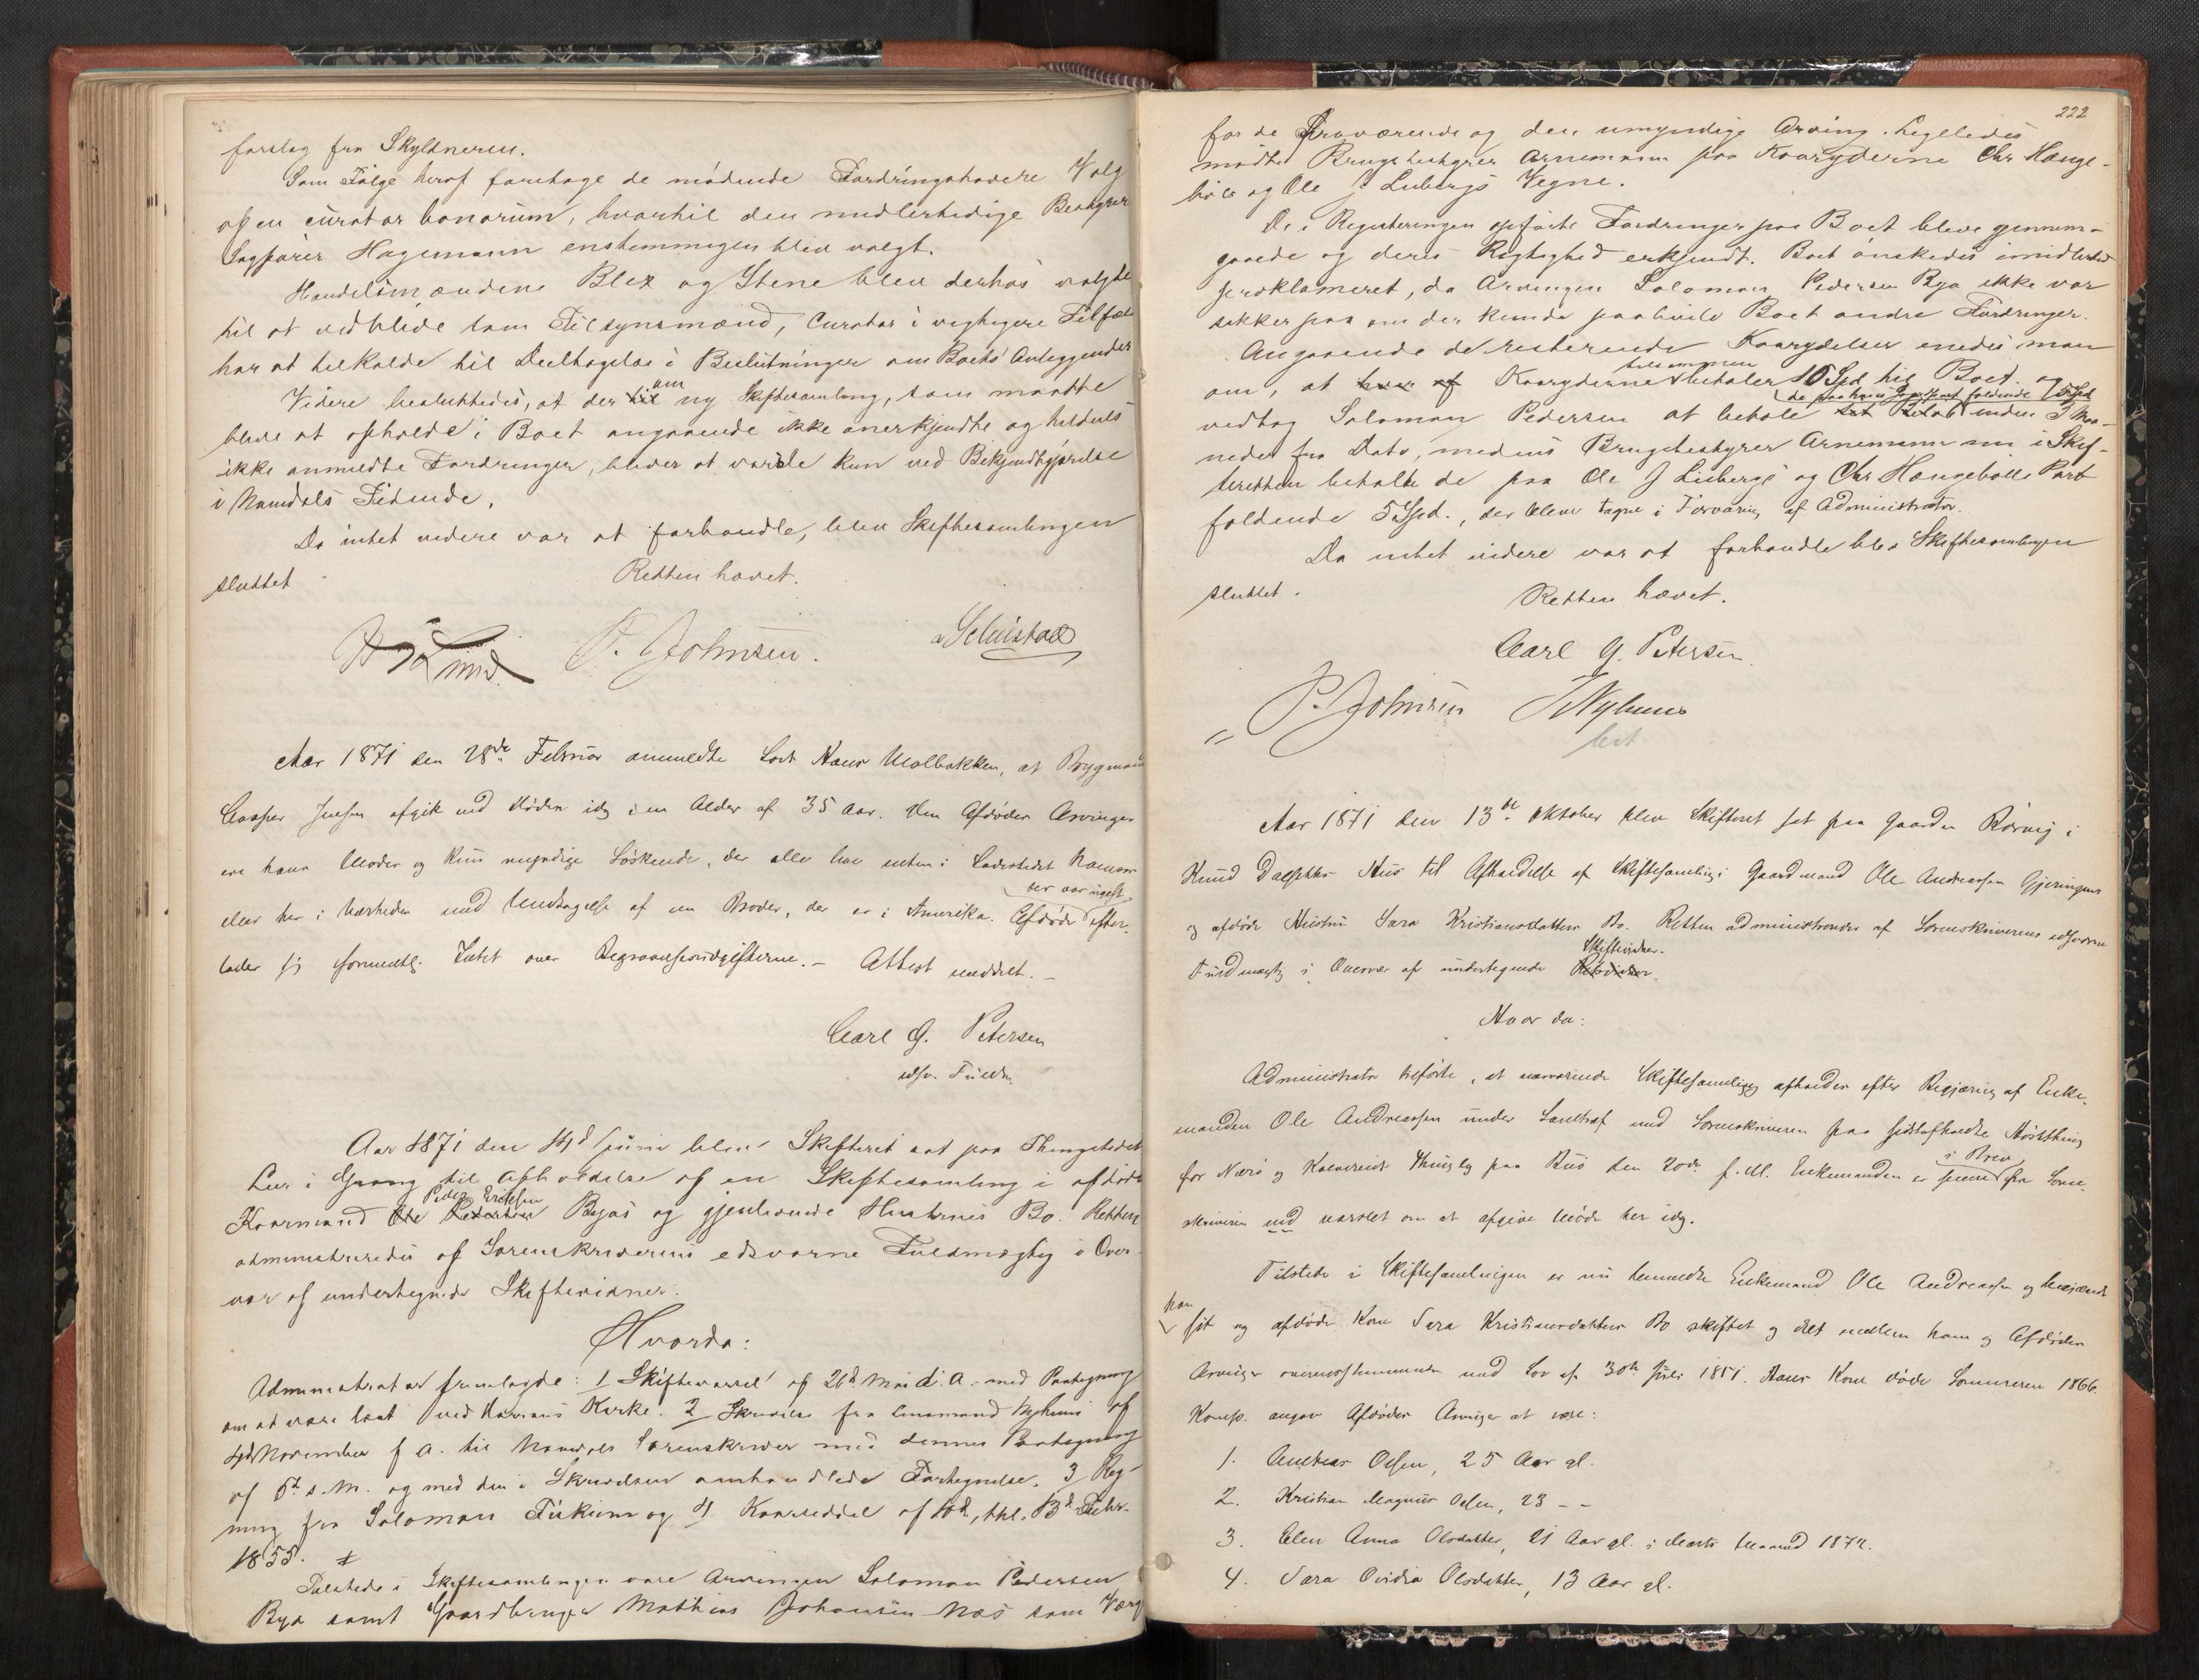 forslag fra Skyldneren.
Som Følge heraf foretoge de mødende Fordringshavere Valg
af en curator bonorum, hvortil den midlertidige Bestyrer
Sagfører Hagemann enstemmigen blev valgt.
Handelsmændene Blix og Stene blev derhos valgte
til at vedblive som Tilsynsmænd, Curator i vigtigere Tilfælde
har at tilkalde til Deeltagelse i Beslutninger om Boets Anliggender
Videre besluttedes, at der til om ny Skiftesamling, som maatte
blive at afholde i Boet angaaende ikke anerkjendte og hidtils
ikke anmeldte Fordringer, bliver at varsle kun ved Bekjendtgjørelse
i Namdals Tidende.
Da intet videre var at forhandle, blev Skiftesamlingen
sluttet
Retten hævet.
P. Johnsen.
Aar 1871 den 28de Februar anmeldte Hans Molbakken, at Bygmand
Casper Jensen afgik ved Døden idag i en Alder af 35 Aar. Den Afdødes Arvinger
ere hans Moder og Kuns myndige Søskende, der alle bor uden i Ladestedet Namsos
eller her i Nærheden med Undtagelse af en Broder, der er i Amerika. Afdøde der var ugift efter-
lader sig formentlig Intet over Begravelsesudgifterne. - Attest meddelt. -
Carl G. Petersen
edsv. Fuldm.
Aar 1871 den 14d Juni blev Skifteret sat paa Thingstedet
Lier i Grong til Afholdelse af en Skiftesamling i afdøde
Kaarmand Ole Pedersen Peder Eriksen Byas og gjenlevende Hustrues Bo. Retten
administreredes af Sorenskriverens edsvorne Fuldmægtig i Over-
vær af undertegnede Skiftevidner.
Hvorda:
Administrator fremlagde: 1 Skiftevarsel af 26d Mai d. A. med Paategning
om at være læst ved Kirke. 2 Skrivelse fra Lensmand Nyhuus af
4de November f. A. til Namdals Sorenskriver med dennes Paategning
af 5t s. M. og med den i Skrivelsen omhandlede Fortegnelse. 3 Reg-
ning fra Salomon Fiskum og 4 Kaarseddel af 10d, thl. 13d Febr.
1855.
Tilstede i Skiftesamlingen vare Arvingen Salomon Pedersen
Bya samt Gaardbruger Mathias Johansen Næs som Værge
222
for de fraværende og den umyndige Arving. Ligeledes
mødte Brugsbestyrer Arnemann paa Kaaryderne Chr Hange-
bolle og Ole J Lubergs Vegne.
De i Registeringen opførte Fordringer paa Boet bleve gjennem-
gaaede og deres Rigtighed erkjendt. Boet ønskedes imidlertid
proklameret, da Arvingen Salomon Pedersen Bya ikke var
sikker paa om der kunde paahvile Boet andre Fordringer.
Angaaende de resterende Kaarydelser enedes man
om, at hver af Kaaryderne tilsammen betaler 10 Spd til Boet. og
vedtog Salomon Pedersen at betale det Beløb de paa hans Part faldende 5 Spd inden 3 Maa-
neder fra Dato, medens Brugsbestyrer Arnemann nu i Skif-
teretten betalte de paa Ole J Lubergs og Chr Hangebolls Part
faldende 5 Spd., der bleve tagne i Forvaring af Administrator.
Da intet videre var at forhandle blev Skiftesamlingen
sluttet.
Retten hævet.
Carl G. Petersen.
P. Johnsen Nyhuus
Aar 1871 den 13de Oktober blev Skifteret sat paa Gaarden Rørvig i
Knud Hus til Afholdelse af Skiftesamling i Gaardmand Ole Andreassen Gjeringens
og afdøde Hustru Sara Kristiansdatters Bo. Retten administreredes af Sorenskriverens edsvorne
Fuldmægtig i Overvær af undertegnede Retsvidner Skiftevidner.
Hvor da:
Administrator tilførte, at nærværende Skiftesamling afholdes efter Begjæring af Enke-
manden Ole Andreassen under Samtale med Sorenskriveren paa sidstafholdte Høstthing
for Nærø og Kolvereids Thinglag paa Rus den 20de f. M. Enkemanden er i Brev fra Soren-
skriveren ved varslet om at afgive Møde her idag.
Tilstede i Skiftesamlingen er nu bemeldte Enkemand Ole Andreassen og begjærede
han sit og afdøde Kone Sara Kristiansdatters Bo skiftet og delt mellem ham og Afdødes
Arvinger overensstemmende med Lov af 30te Juli 1851. Hans Kone døde Sommeren 1866.
Komp. angav Afdødes Arvinger at være:
1. Andreas Olsen, 25 Aar gl.
2. Kristian Magnus Olsen, 23 - -
3. Elen Anna Olsdatter, 21 Aar gl. i Marts Maaned 1872.
4. Sara Ovidia Olsdatter, 13 Aar gl.